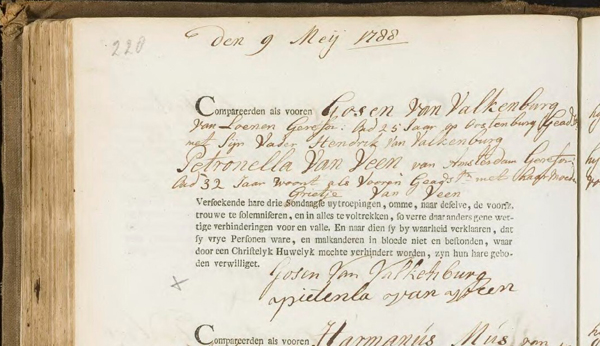 220
den 9 Meij 1788
Compareerden als vooren Gosen van Valkenburg
van Loenen Gerefor: Oud 25 Jaar op Oostenburg Geads:
met Sijn Vader Hendrik van Valkenburg
Petronella van Veen van Amsterdam Gerefor:
Oud 32 Jaar woont als Vooren Geads: met Haar Moeder
Grietje van Veen
Versoekende hare drie Sondaagse uytroepingen, omme, naar deselve, de voorsz.
trouwe te solemniseren, en in alles te voltrekken, so verre daar anders gene wet-
tige verhinderingen voor en valle. En naar dien sy by waarheid verklaaren, dat
sy vrye Personen ware, en malkanderen in bloede niet en bestonden, waar
door een Christelyk Huwelyk mochte verhindert worden, zyn hun hare gebo-
den verwilliget.
Gosen van Valkenburg
x
van veen
Compareerden als vooren Harmanús Mús van